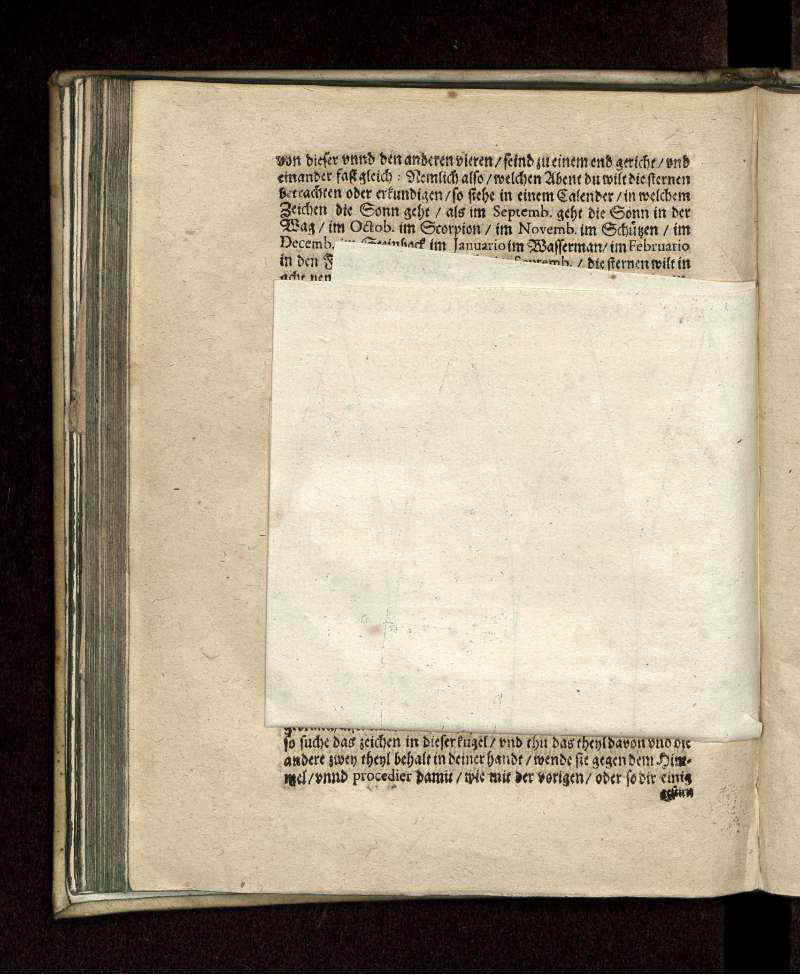 von dieser vnnd den anderen vieren / seind zu einem end gericht / vnd
einander fast gleich : Nemlich also / welchen Abent du wilt die sternen
betrachten oder erkundigen / so siehe in einem Calender / in welchem
Zeichen die Sonn geht / als im Septemb. geht die Sonn in der
Wag / im Octob. im Scorpion / im Novemb. im Schützen / im
Decemb. im Steinbock im Januario im Wasserman / im Februario
in den Septemb. / die sternen wilt in
acht nen
so suche das zeichen in dieser kugel / vnd thu das theyl davon vnd die
andere zwey theyl behalt in deiner handt / wende sie gegen dem Him-
mel / vnnd procedier damit / wie mit der vorigen / oder so dir einig